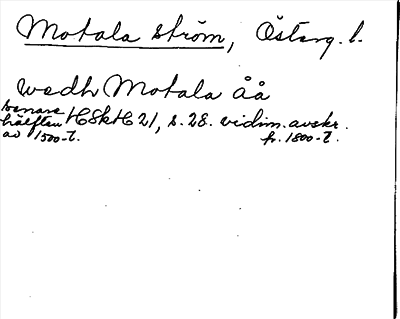 Motala ström, Österg. l.
wedh Motala åå
senare hälften av 1500-t. HSkH 21, s. 28. vidim. avskr. fr. 1800-t.